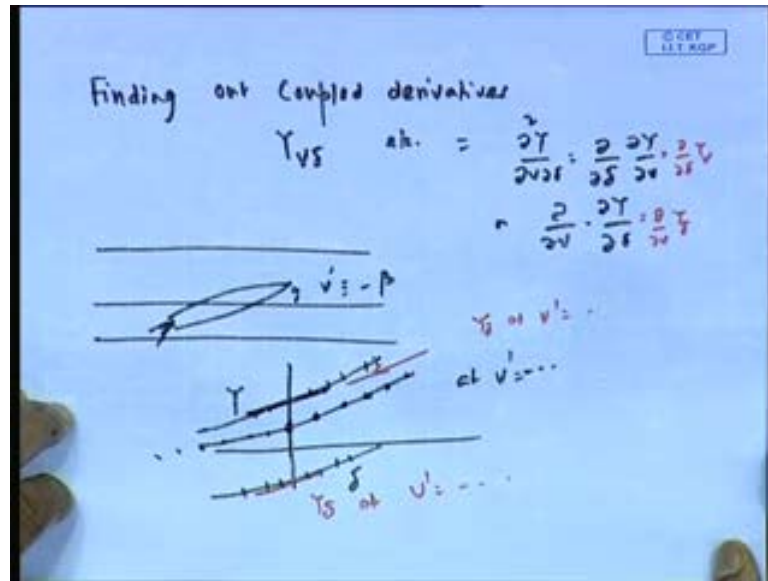 © CET
I.I.T. KGP
Finding out Coupled derivatives
Y_vδ etc. = ∂²Y/∂v∂δ = ∂/∂δ ∂Y/∂v = ∂/∂δ Y_v
= ∂/∂v · ∂Y/∂δ = ∂/∂v Y_δ
v' = -β
Y_δ at v' = ·
Y
at v' = ---
δ
Y_δ at v' = ----